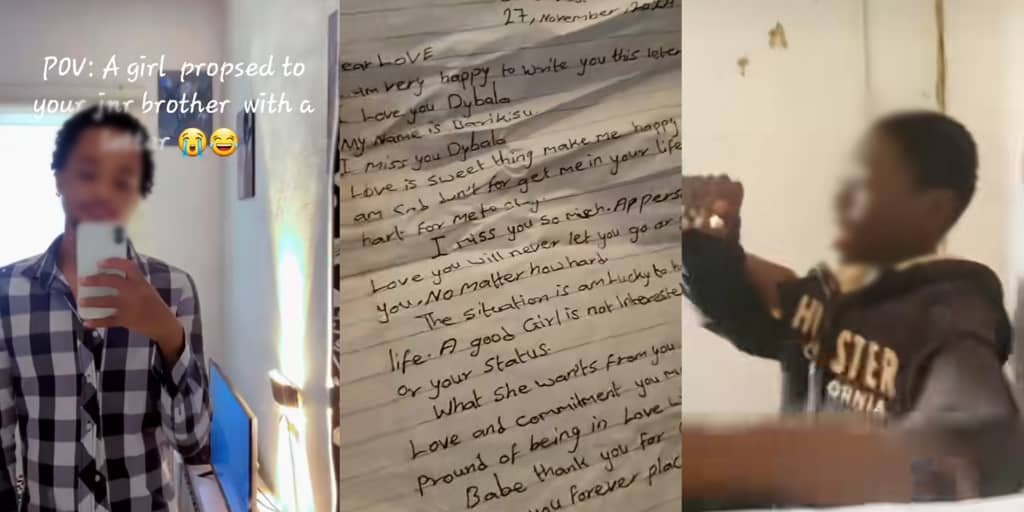 POV: A girl propsed to
your jnr brother with a
😭😄
27, November, 2024
ear LOVE
am very happy to write you this leter
Love you Dybala
My Name is Barikisu
I miss you Dybala
Love is sweet thing make me happy
am and don't for get me in your life
hart for me to
I miss you so mach. A person
Love you will never let you go or
you. No matter how hard
The situation is am Lucky to
life. A good Girl is not interested
or your status.
What she wants from you
Love and commitment you
Pround of being in Love
Babe thank you for
you forever plac
STER
ORNIA